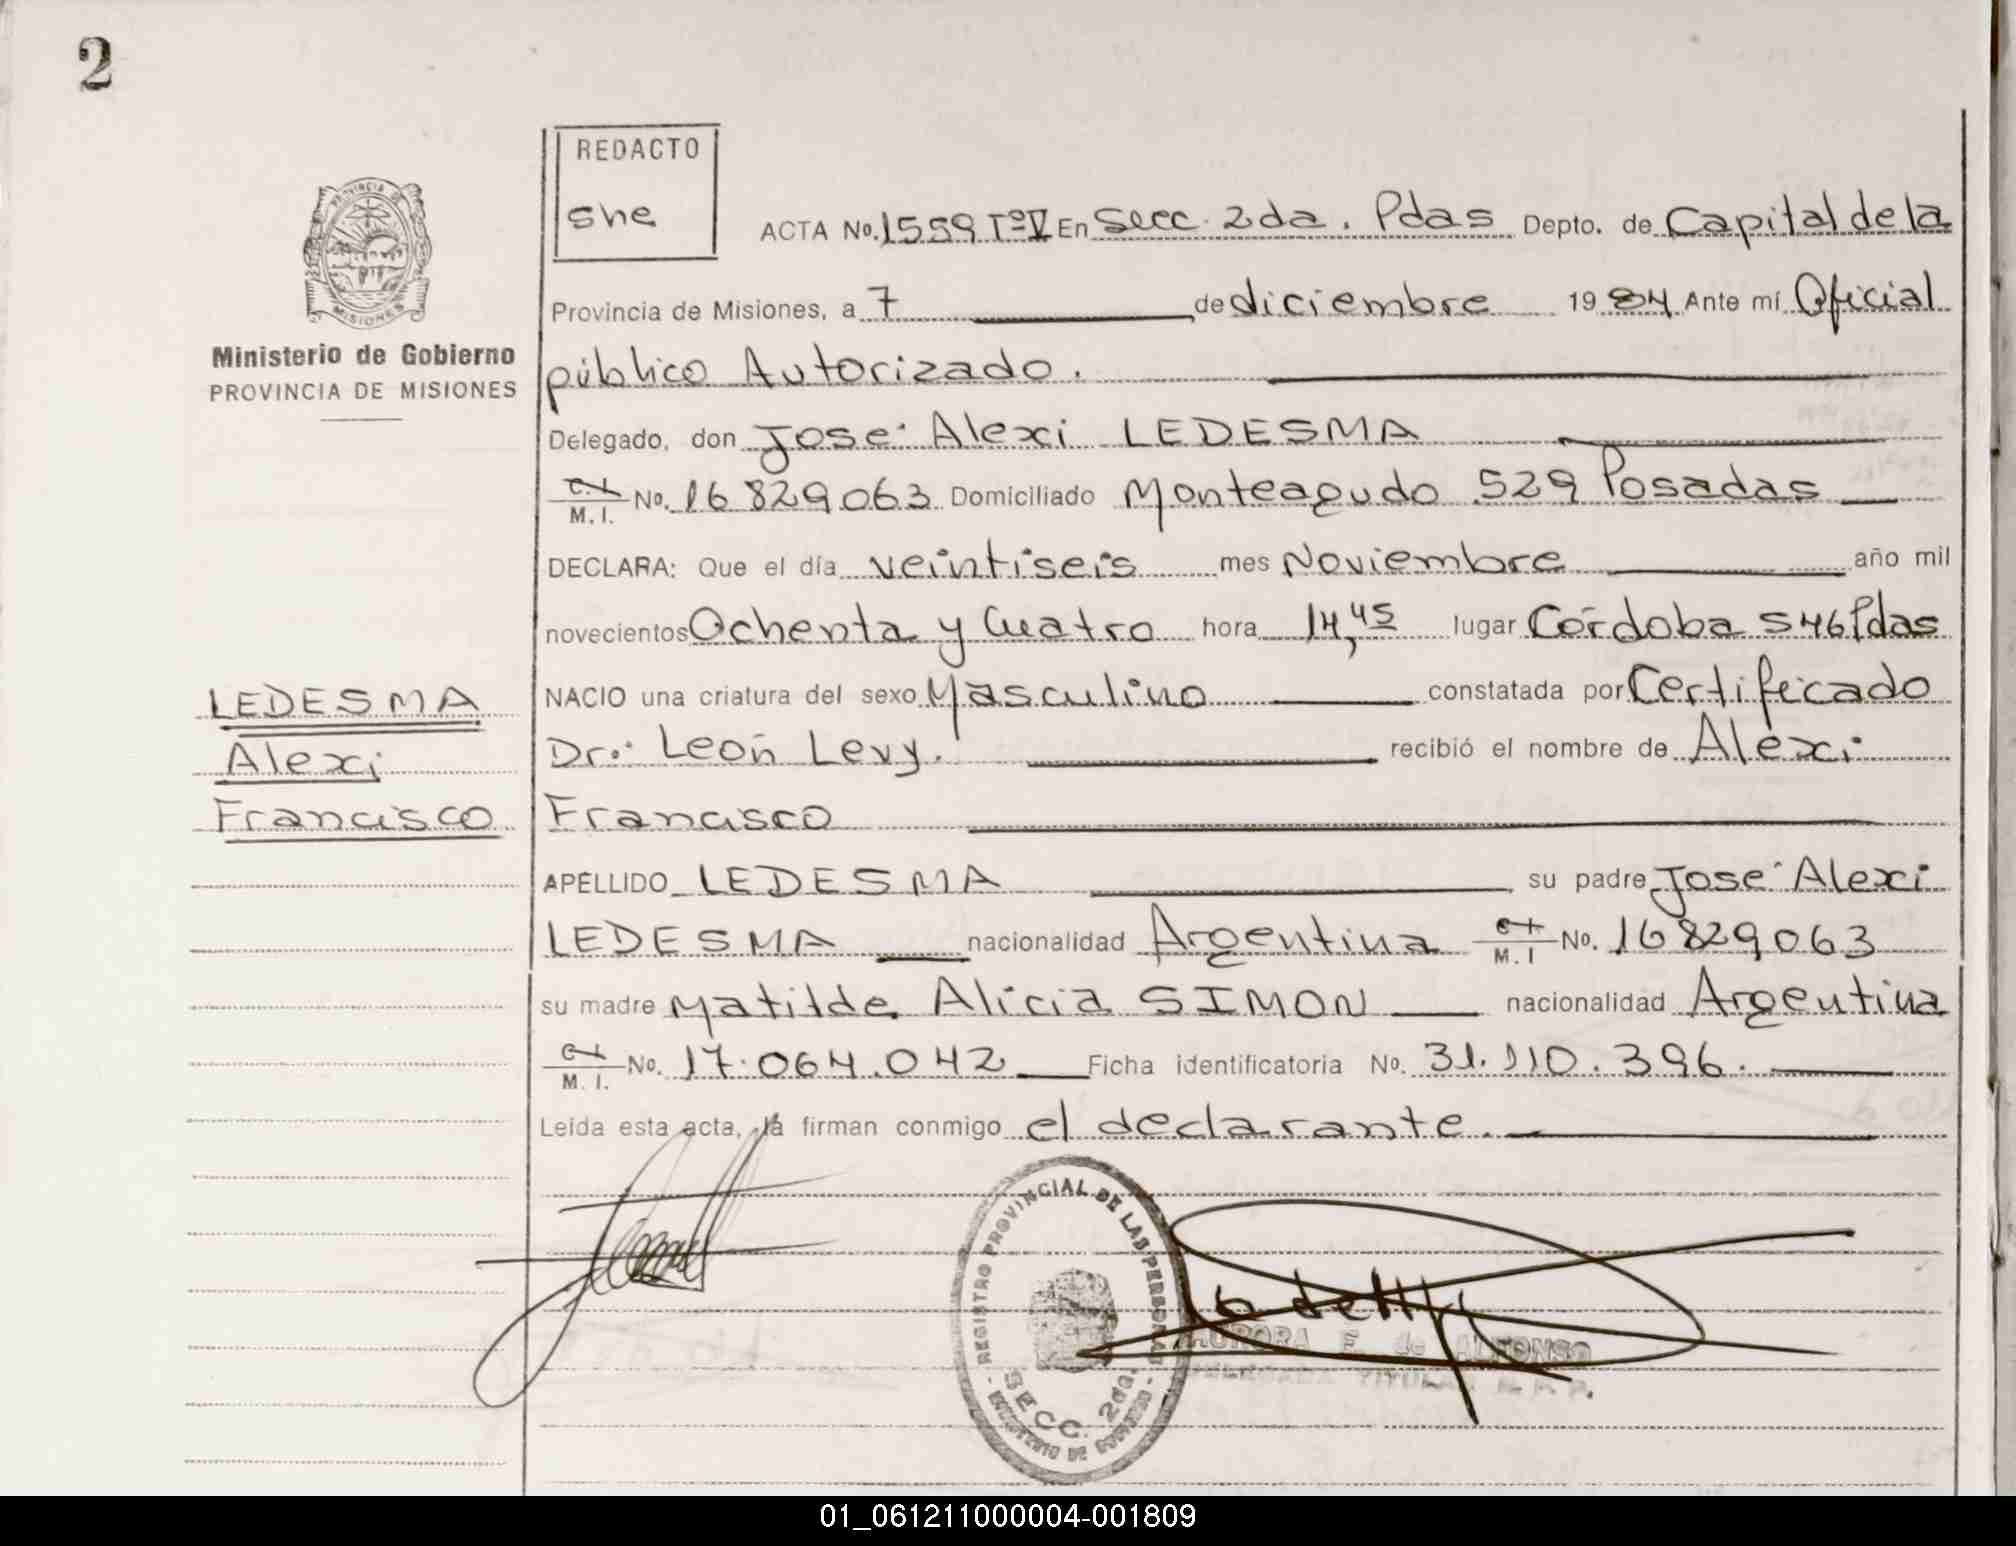 2
REDACTO
she
PROVINCIA DE
MISIONES
Ministerio de Gobierno
PROVINCIA DE MISIONES
ACTA No. 1559 TºV En Secc. 2da. Pdas Depto. de Capital de la
Provincia de Misiones, a 7 de diciembre 1984 Ante mí Oficial
público Autorizado.
Delegado, don José Alexi LEDESMA
C.I. M.I. No. 16829063 Domiciliado Monteagudo 529 Posadas
DECLARA: Que el día veintiseis mes Noviembre año mil
novecientos Ochenta y Cuatro hora 14,45 lugar Córdoba 546 Pdas
NACIO una criatura del sexo Masculino constatada por Certificado
Dr: León Levy. recibió el nombre de Alexi
Francisco
APELLIDO LEDESMA su padre José Alexi
LEDESMA nacionalidad Argentina C.I. M.I No. 16829063
su madre Matilde Alicia SIMON nacionalidad Argentina
C.I. M.I. No. 17.064.042 Ficha identificatoria No. 31.110.396.
Leída esta acta, la firman conmigo el declarante.
LEDESMA
Alexi
Francisco
REGISTRO PROVINCIAL DE LAS PERSONAS
SECC. 2da.
MINISTERIO DE GOBIERNO
AURORA E. de ALFONSO
DELEGADA TITULAR R.P.P.
01_061211000004-001809